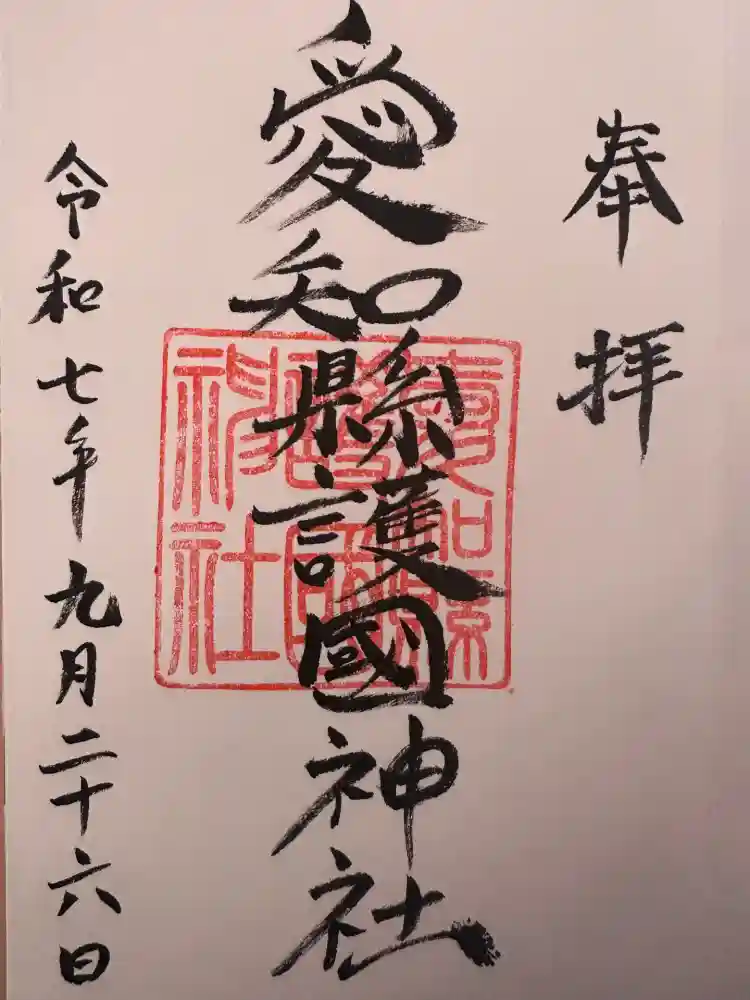 奉拝
愛知縣護國神社
愛知縣護國神社
令和七年九月二十六日